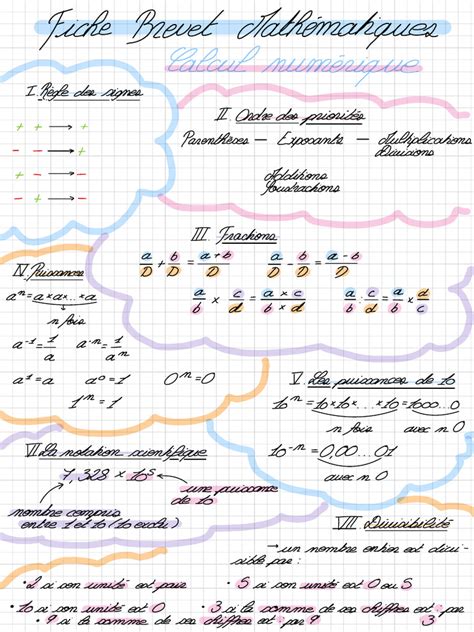 Fiche Brevet Mathématiques
Calcul numérique
I. Règle des signes
+ + → +
- - → +
+ - → -
- + → -
II. Ordre des priorités
Parenthèses — Exposants — Multiplications
Divisions
Additions
Soustractions
III. Fractions
a/D + b/D = a+b/D    a/D - b/D = a-b/D
a/b × c/d = a×c/b×d    a/b : c/d = a/b × d/c
IV. Puissances
aⁿ = a×a×...×a
n fois
a⁻¹ = 1/a    a⁻ⁿ = 1/aⁿ
a¹ = a    a⁰ = 1    0ⁿ = 0
1ⁿ = 1
V. Les puissances de 10
10ⁿ = 10×10×...×10 = 1000...0
n fois    avec n 0
10⁻ⁿ = 0,00...01
avec n 0
VI. La notation scientifique
7,328 × 10⁵
une puissance
de 10
nombre compris
entre 1 et 10 (10 exclu)
VII Divisibilité
→ un nombre entier est divi-
sible par :
• 2 si son unité est pair
• 5 si son unité est 0 ou 5
• 10 si son unité est 0
• 3 si la somme de ses chiffres est par
3
• 9 si la somme de ses chiffres est par 9